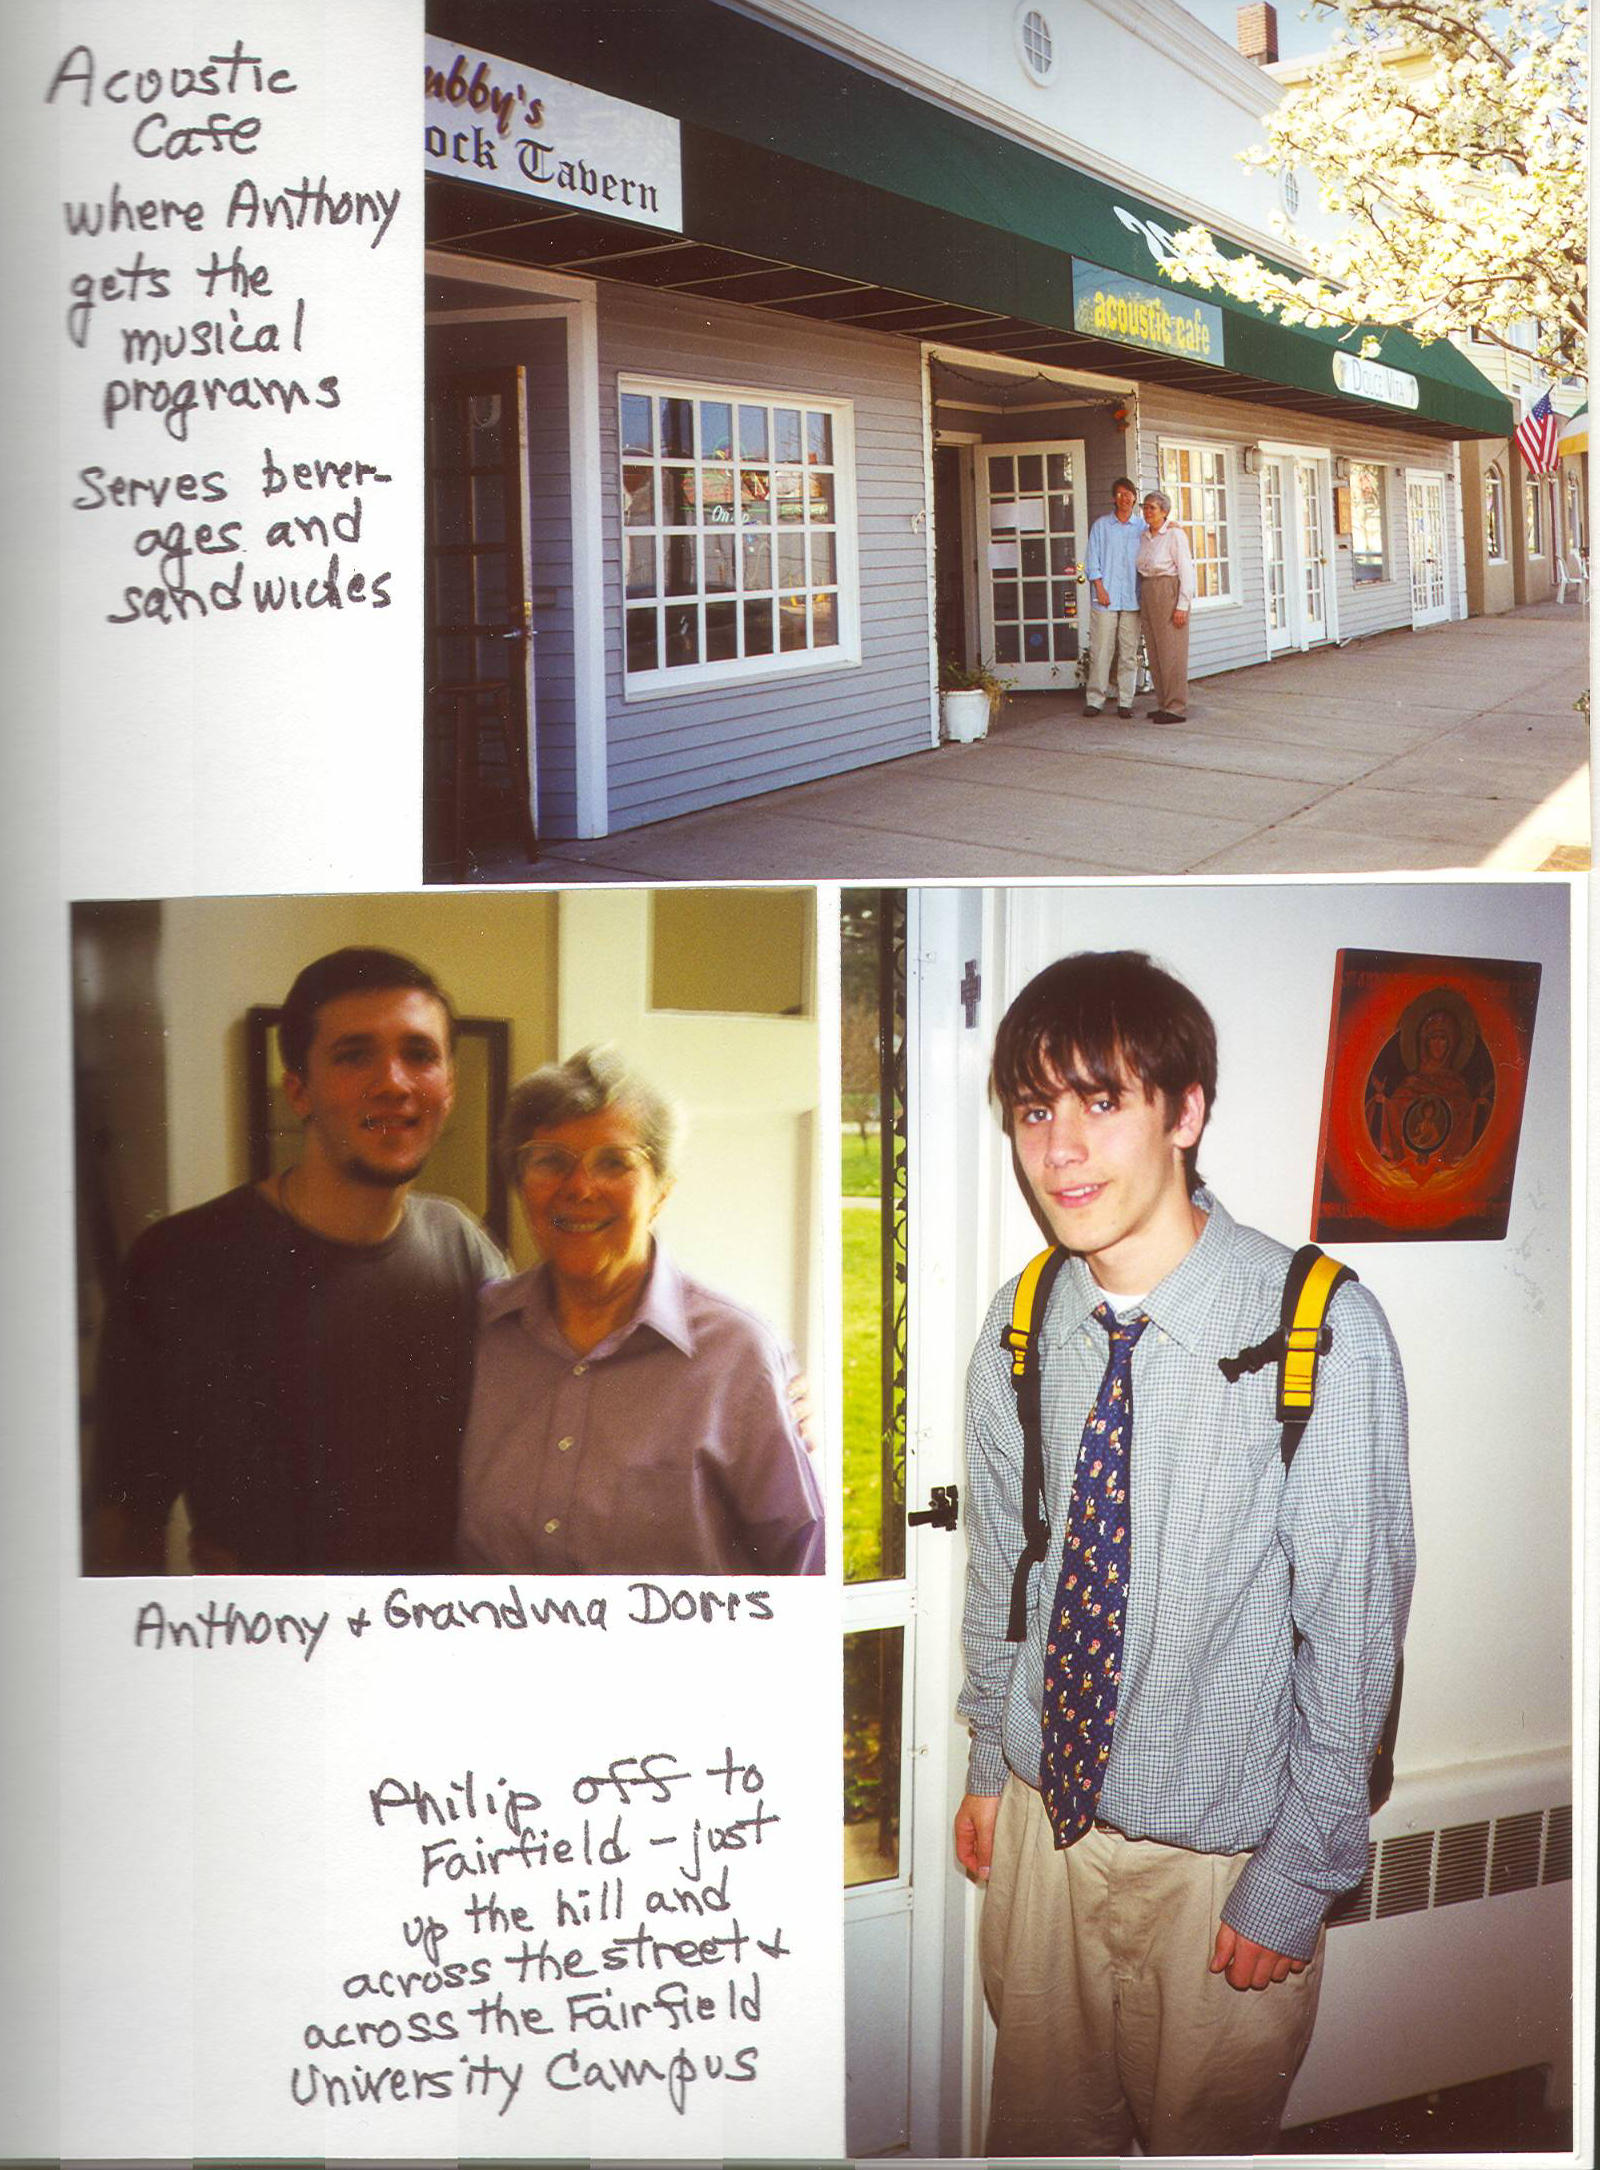 Acoustic
Cafe
where Anthony
gets the
musical
programs
Serves bever-
ages and
sandwiches
ubby's
ock Tavern
acoustic cafe
DOLCE VITA
Anthony & Grandma Dorrs
Philip off to
Fairfield - just
up the hill and
across the street &
across the Fairfield
University Campus